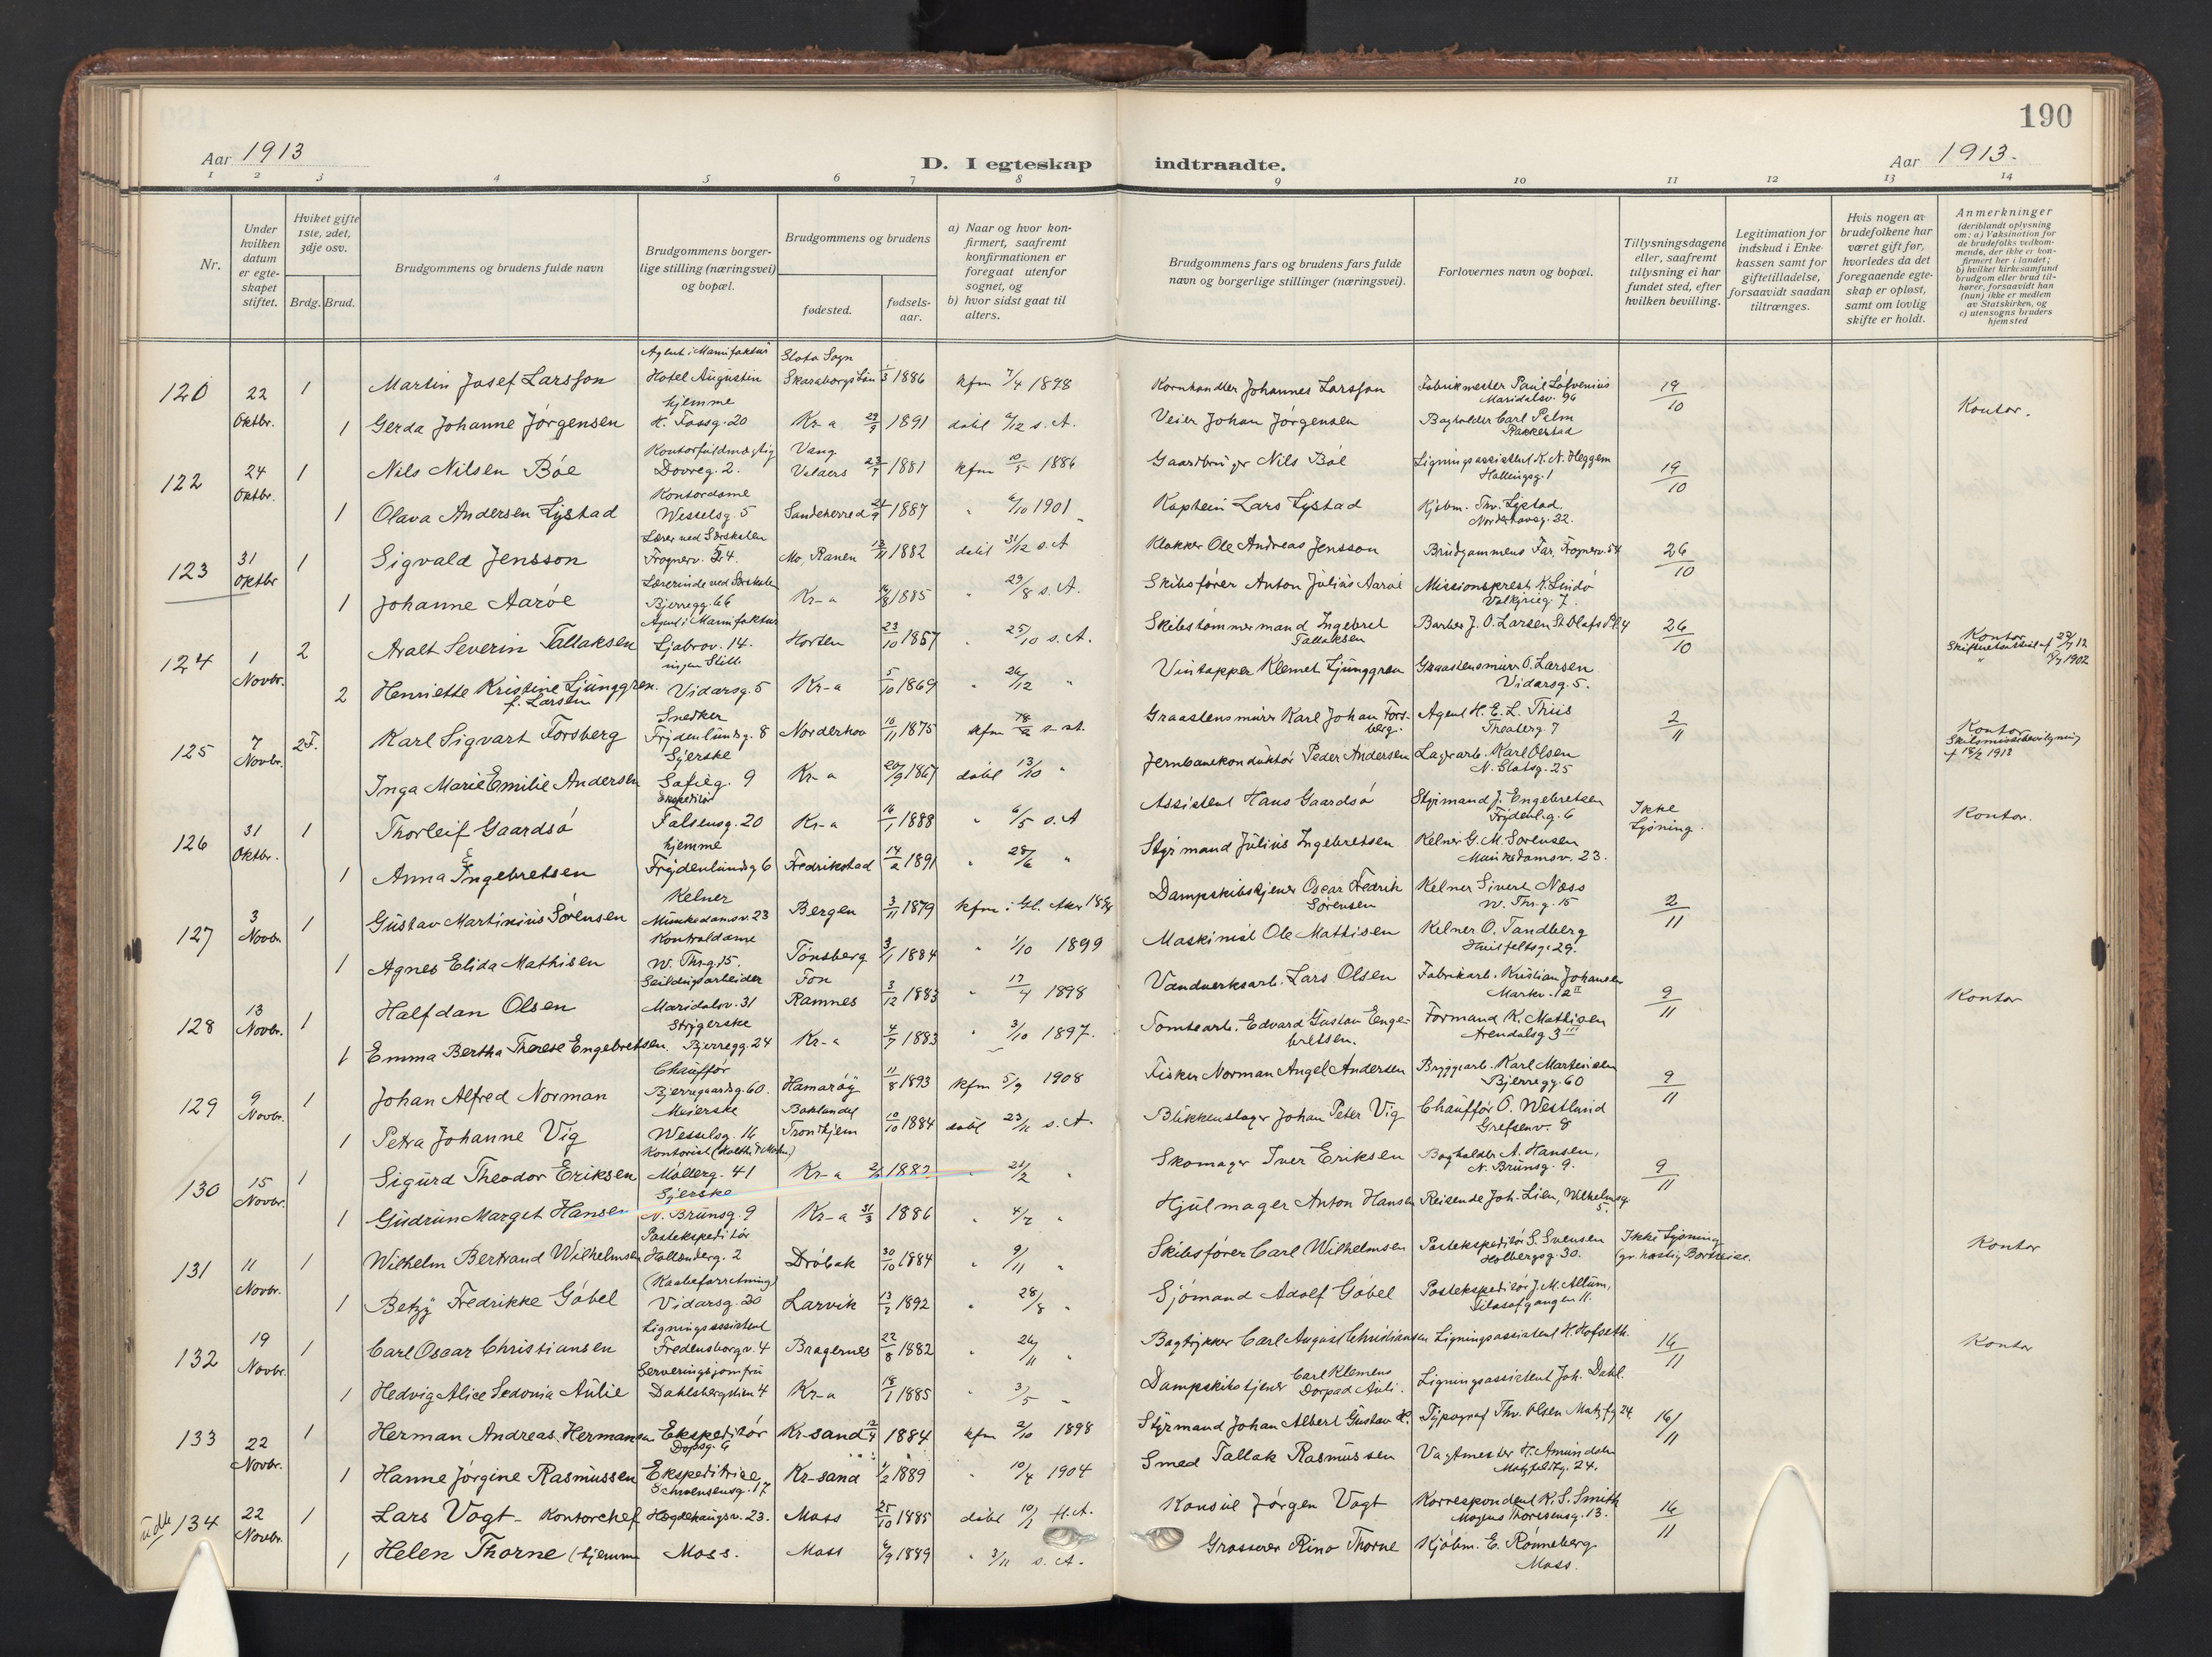 190
Aar 1913
D. I egteskap indtraadte.
Aar 1913.
1 2 3 4 5 6 7 8 9 10 11 12 13 14
Nr.
Under hvilken datum er egteskapet stiftet.
Hviket gifte 1ste, 2det, 3dje osv.
Brdg. Brud.
Brudgommens og brudens fulde navn
Brudgommens borgerlige stilling (næringsvei) og bopæl.
Brudgommens og brudens
fødested.
fødselsaar.
a) Naar og hvor konfirmert, saafremt konfirmationen er foregaat utenfor sognet, og
b) hvor sidst gaat til alters.
Brudgommens fars og brudens fars fulde navn og borgerlige stillinger (næringsvei).
Forlovernes navn og bopæl.
Tillysningsdagene eller, saafremt tillysning ei har fundet sted, efter hvilken bevilling.
Legitimation for indskud i Enkekassen samt for giftetilladelse, forsaavidt saadan tiltrænges.
Hvis nogen av brudefolkene har været gift før, hvorledes da det foregaaende egteskap er opløst, samt om lovlig skifte er holdt.
Anmerkninger (deriblandt oplysning om: a) Vaksination for de brudefolks vedkommende, der ikke er konfirmert her i landet; b) hvilket kirkesamfund brudgom eller brud tilhører, forsaavidt han (hun) ikke er medlem av Statskirken, og c) utensogns bruders hjemsted
120 22 Oktbr. 1 Martin Josef Larsson Agent i Manufaktur Hotel Augustin Slota Sogn Skaraborgs Län 1/3 1886 kfm 7/4 1898 Kornhandler Johannes Larsson Fabrikmester Paul Löfvenius Maridalsv. 96 19/10 Kontor.
1 Gerda Johanne Jørgensen hjemme H. Fossg. 20 Kr-a 29/9 1891 dabl 6/12 s. A. Veier Johan Jørgensen Bogholder Carl Palm Rakkestad
122 24 Oktbr. 1 Nils Nilsen Bøe Kontorfuldmægtig Dovreg. 2. Vang Valders 23/7 1881 kfm 10/5 1886 Gaardbruger Nils Bøe Ligningsassistent K. N. Heggem Hallingsg. 1 19/10
1 Olava Andersen Lystad Kontordame Wesselsg. 5 Sandeherred 21/9 1887 " 6/10 1901 Kaptein Lars Lystad Kjøbm. Thv. Lystad. Norderhovsg. 32.
123 31 Oktbr 1 Sigvald Jensson Lærer ved Børskolen Frognerv. 54. Mo, Ranen 13/11 1882 dabl 31/12 s. A Klokker Ole Andreas Jensson Brudgommens Far, Frognerv. 54 26/10
1 Johanne Aarøe Lærerinde ved Børskolen Bjerregg. 66 Kr-a 14/8 1885 " 29/8 s. A. Skibsfører Anton Julius Aarøe Missionsprest K. Lindø Valkyrieg. 7.
124 1 Novbr. 2 Aralt Severin Tallaksen Agent i Manufaktur Ljabrov. 14. Horten 23/10 1857 " 25/10 s. A. Skibstømmermand Ingebret Tallaksen Barber J. O. Larsen St. Olafs Pl. 4 26/10 Kontor Skifteretsattest af 27/9 12 " 1/7 1902
2 Henriette Kristine Ljunggren. f. Larsen ingen Still. Vidarsg. 5 Kr-a 5/10 1869 " 26/12 " Vintapper Klemet Ljunggren Graastensmurer O. Larsen Vidarsg. 5.
125 7 Novbr. 2F. Karl Sigvart Forsberg Snedker Frydenlundsg. 8 Norderhov 16/11 1875 kfm s. st. Graastensmurer Karl Johan Forsberg. Agent H. E. L. Thiis Theaterg. 7 2/11 Kontor Skilsmissebevilgning f 18/2 1913
Inga Marie Emilie Andersen Syerske Sofieg. 9 Kr-a 20/9 1867 dabl 13/10 " Jernbanekonduktør Peder Andersen Lagerarb. Karl Olsen N. Slotsg. 25
126 31 Oktbr. 1 Thorleif Gaardsø Ekspeditør Falsensg. 20 Kr-a 16/1 1888 " 6/5 s. A Assistent Hans Gaardsø Styrmand J. Engebretsen Frydenl.g. 6 Ikke Lysning. Kontor.
1 Anna Ingebretsen hjemme Frydenlundsg 6 Fredrikstad 14/2 1891 " 28/6 " Styrmand Julius Ingebretsen Kelner G. M. Sørensen Munkedamsv. 23.
127 3 Novbr 1 Gustav Martinius Sørensen Kelner Munkedamsv. 23 Bergen 3/11 1879 kfm i Gl. Aker Dampskibstjener Oscar Fredrik Sørensen Kelner Sivert Næss W. Thr.g. 15 2/11
1 Agnes Elida Mathisen Kontroldame W. Thr.g. 15. Tønsberg 3/1 1884 " 1/10 1899 Maskinist Ole Mathisen Kelner O. Tandberg Huitfeltsg. 29.
128 13 Novbr. 1 Halfdan Olsen Seildugsarbeider Maridalsv. 31 Fon Ramnes 3/12 1883 " 17/4 1898 Vandverksarb. Lars Olsen Fabrikarb. Kristian Johansen Markv. 12 II 9/11 Kontor
1 Emma Bertha Therese Engebretsen. Strygerske Bjerregg. 24 Kr-a 4/7 1883 " 3/10 1897. Tomtearb. Edvard Gustav Engebretsen. Formand K. Mathisen Arendalsg 3 III
129 9 Novbr. 1 Johan Alfred Norman Chauffør Bjerregaardsg. 60. Hamarøy 11/8 1893 kfm 5/9 1908 Fisker Norman Angel Andersen Bryggearb. Karl Martinsen Bjerregg. 60 9/11
1 Petra Johanne Vig Meierske Wesselsg. 16 Baklandet Trondhjem 10/10 1884 dabl 23/11 s. A. Blikkenslager Johan Peter Vig Chauffør O. Westlund Grefsenv. 8
130 15 Novbr. 1 Sigurd Theodor Eriksen Kontorist Møllerg. 41 Kr-a 1882 " 21/2 " Skomager Iver Eriksen Bogholder A. Hansen, N. Brunsg. 9. 9/11
1 Gudrun Marget Hansen Syerske N. Brunsg. 9 Kr-a 31/3 1886 " 4/7 " Hjulmager Anton Hansen Reisende Joh. Lien, Wilhelmsg 5.
131 11 Novbr. 1 Wilhelm Bertrand Wilhelmsen Postekspeditør Hollenderg. 2 Drøbak 30/10 1884 " 9/11 " Skibsfører Carl Wilhelmsen Postekspeditør S. Svensen Holbergsg. 30. Ikke Lysning (gr. hastig Bortreise. Kontor
1 Betzy Fredrikke Gøbel (Kaabeforretning) Vidarsg. 20 Larvik 13/7 1892 " 28/8 " Sjømand Adolf Gøbel Postekspeditør J. M. Altum, Filosofgangen 11.
132 19 Novbr. 1 Carl Oscar Christiansen Ligningsassistent Fredensborgv. 4 Bragernes 22/8 1882 " 26/11 " Bogtrykker Carl August Christiansen Ligningsassistent H. Hofseth. 16/11 Kontor
1 Hedvig Alice Sedonia Aulie Serveringsjomfru Dahlsbergstien 4 Kr-a 18/1 1885 " 3/5 " Dampskibstjener Carl Klemens Dorpad Auli. Ligningsassistent Joh. Dahl.
133 22 Novbr. 1 Herman Andreas Hermansen Ekspeditør Dopsg. 6 Kr-sand 12/9 1884 kfm 2/10 1898 Styrmand Johan Albert Gustav H. Typograf Thv. Olsen 24 16/11
1 Hanne Jørgine Rasmussen Ekspeditrice Schwensensg. 17 Kr-sand 4/2 1889 " 10/4 1904 Smed Tallak Rasmussen Vagtmester H. Amundsen 24.
134 22 Novbr. 1 Lars Vogt - Kontorchef Hegdehaugsv. 23. Moss 25/10 1885 dabl 10/1 Konsul Jørgen Vogt Korrespondent K. S. Smith Magnus Thoresensg. 13. 16/11
1 Helen Thorne (hjemme Moss. Moss 6/9 1889 " 3/11 s. A. Grosserer Rino Thorne Kjøbm. E. Rønneberg Moss.